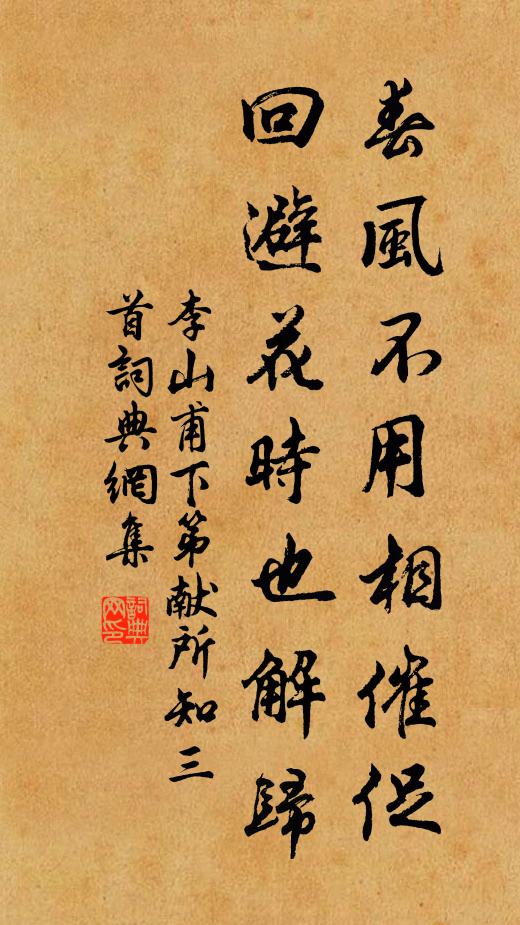 春風不用相催促
回避花時也解歸
李山甫下第献所知三
首詞典網集
詞典網印